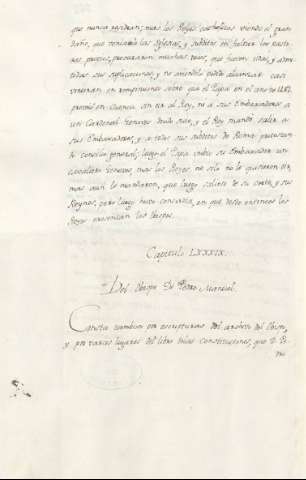 que nunca residian; mas los Reyes catholicos viendo el gran
daño, que recivian las Iglesias, y subditos en faltar los pasto-
res propios, procuraron muchas veces, que fuesen suas, y admi-
tidas sus suplicaciones, y no aviendolo podido alcanzar casi
vinieron en rompimiento sobre que el Papa en el año 1482
proveió en Cuenca sin ser al Rey, ni a sus Embaxadores a
un Cardenal sobrino suio, y el Rey mandó salir a
sus Embaxadores, y a todos sus subditos de Roma procuran-
do concilio general; luego el Papa embió su Embaxador un
cavallero Ginoves, mas los Reyes no solo no le quisieron oir,
mas aun le mandaron, que luego saliese de su corte, y sus
Reynos, pero luego hubo concordia, en que desde entonces los
Reyes presentan los Obispos.
Capitulo LXXXIX.
Del Obispo Dn Pedro Marcial.
Consta tambien por escrituras del archivo del Obispo,
y por varios lugares del libro de las Constituciones, que D. Pe-